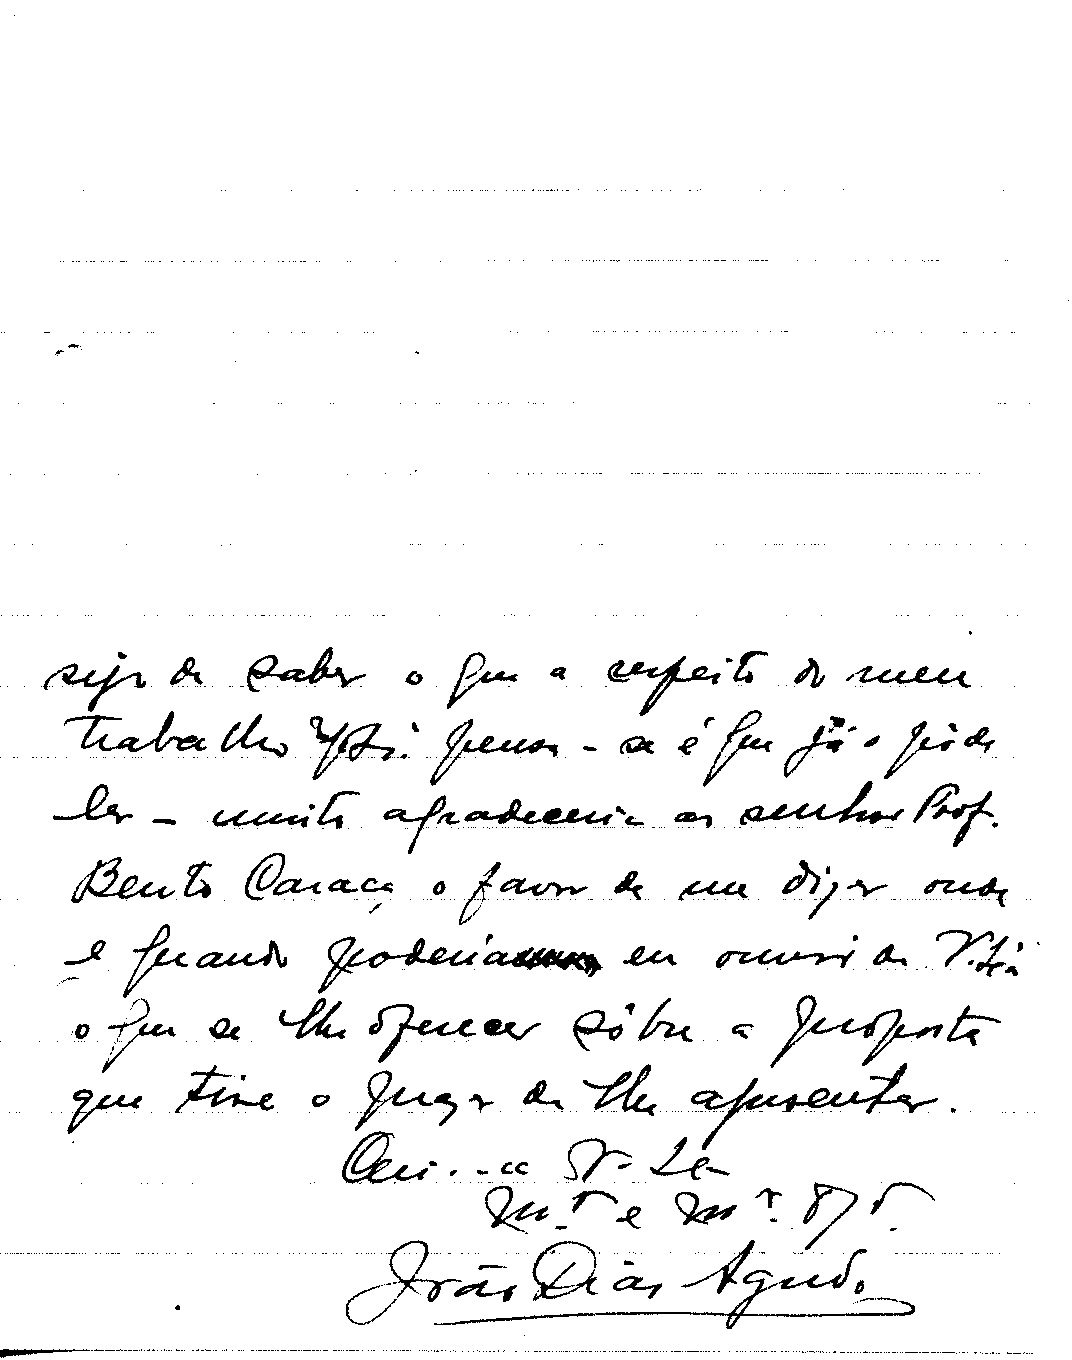 sejo de saber o que a respeito do meu
trabalho pensa - se é que já o pôde
ler - muito agradeceria ao senhor Prof.
Bento Caraça o favor de me dizer onde
e quando poderia eu ouvir de V.
o que se lhe oferecer sôbre a proposta
que tive o prazer de lhe apresentar.
de V.
m.to e m.to
João Dias Agudo